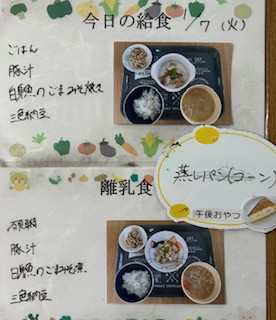 今日の給食 1/7 (火)
ごはん
豚汁
白身魚のごまみそ焼き
三色納豆
蒸しパン(コーン)
午後おやつ
離乳食
豚汁
白身魚のごまみそ煮
三色納豆